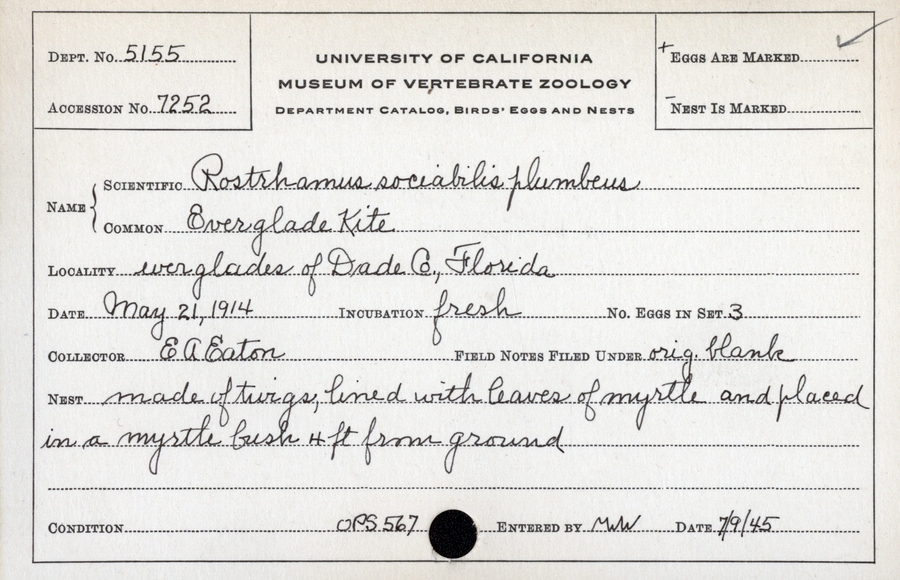 Dept. No. 5155
Accession No. 7252
UNIVERSITY OF CALIFORNIA
MUSEUM OF VERTEBRATE ZOOLOGY
Department Catalog, Birds' Eggs and Nests
+ Eggs Are Marked
- Nest Is Marked
Name
Scientific Rostrhamus sociabilis plumbeus
Common Everglade Kite
Locality everglades of Dade Co., Florida
Date May 21, 1914 Incubation fresh No. Eggs in Set 3
Collector E A Eaton Field Notes Filed Under orig. blank
Nest made of twigs, lined with leaves of myrtle and placed
in a myrtle bush 4 ft from ground
Condition OPS 567 Entered by MWW Date 7/9/45